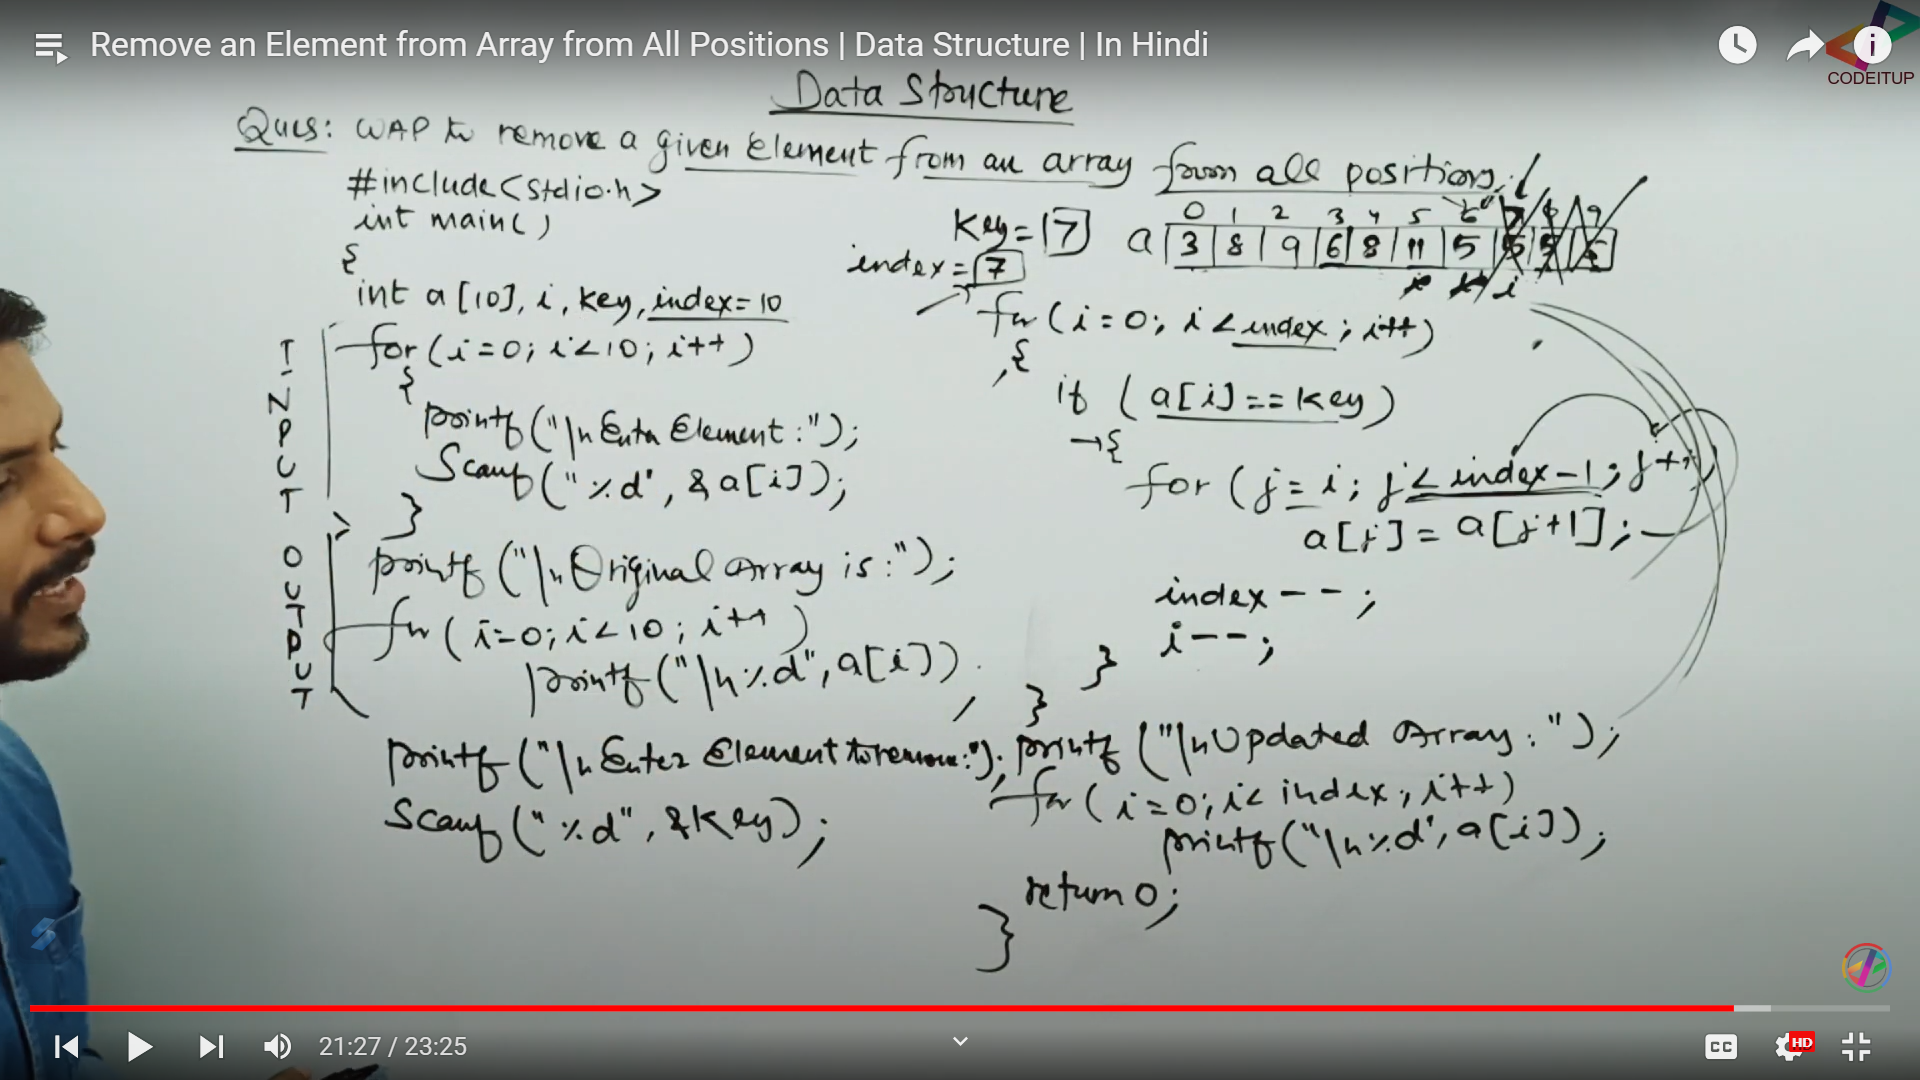 Remove an Element from Array from All Positions | Data Structure | In Hindi
CODEITUP
Data Structure
Ques: WAP to remove a given Element from an array from all positions.
#include<stdio.h>
int main()
{
int a[10], i, key, index=10
for(i=0; i<10; i++)
{
printf("\n Enter Element :");
Scanf("%d", &a[i]);
}
INPUT
printf("\n Original Array is :");
for(i=0; i<10; i++)
printf("\n%d", a[i]);
OUTPUT
printf("\n Enter Element to remove:");
Scanf("%d", &key);
Key=7
index=7
0 1 2 3 4 5 6 7 8 9
a 3 8 9 6 8 11 5 5
i i i
for(i=0; i<index; i++)
{
if (a[i]==key)
→{
for (j=i; j<index-1; j++)
a[j] = a[j+1];
index--;
i--;
}
}
printf("\nUpdated Array:");
for(i=0; i<index; i++)
printf("\n%d", a[i]);
return 0;
}
21:27 / 23:25
CC
HD